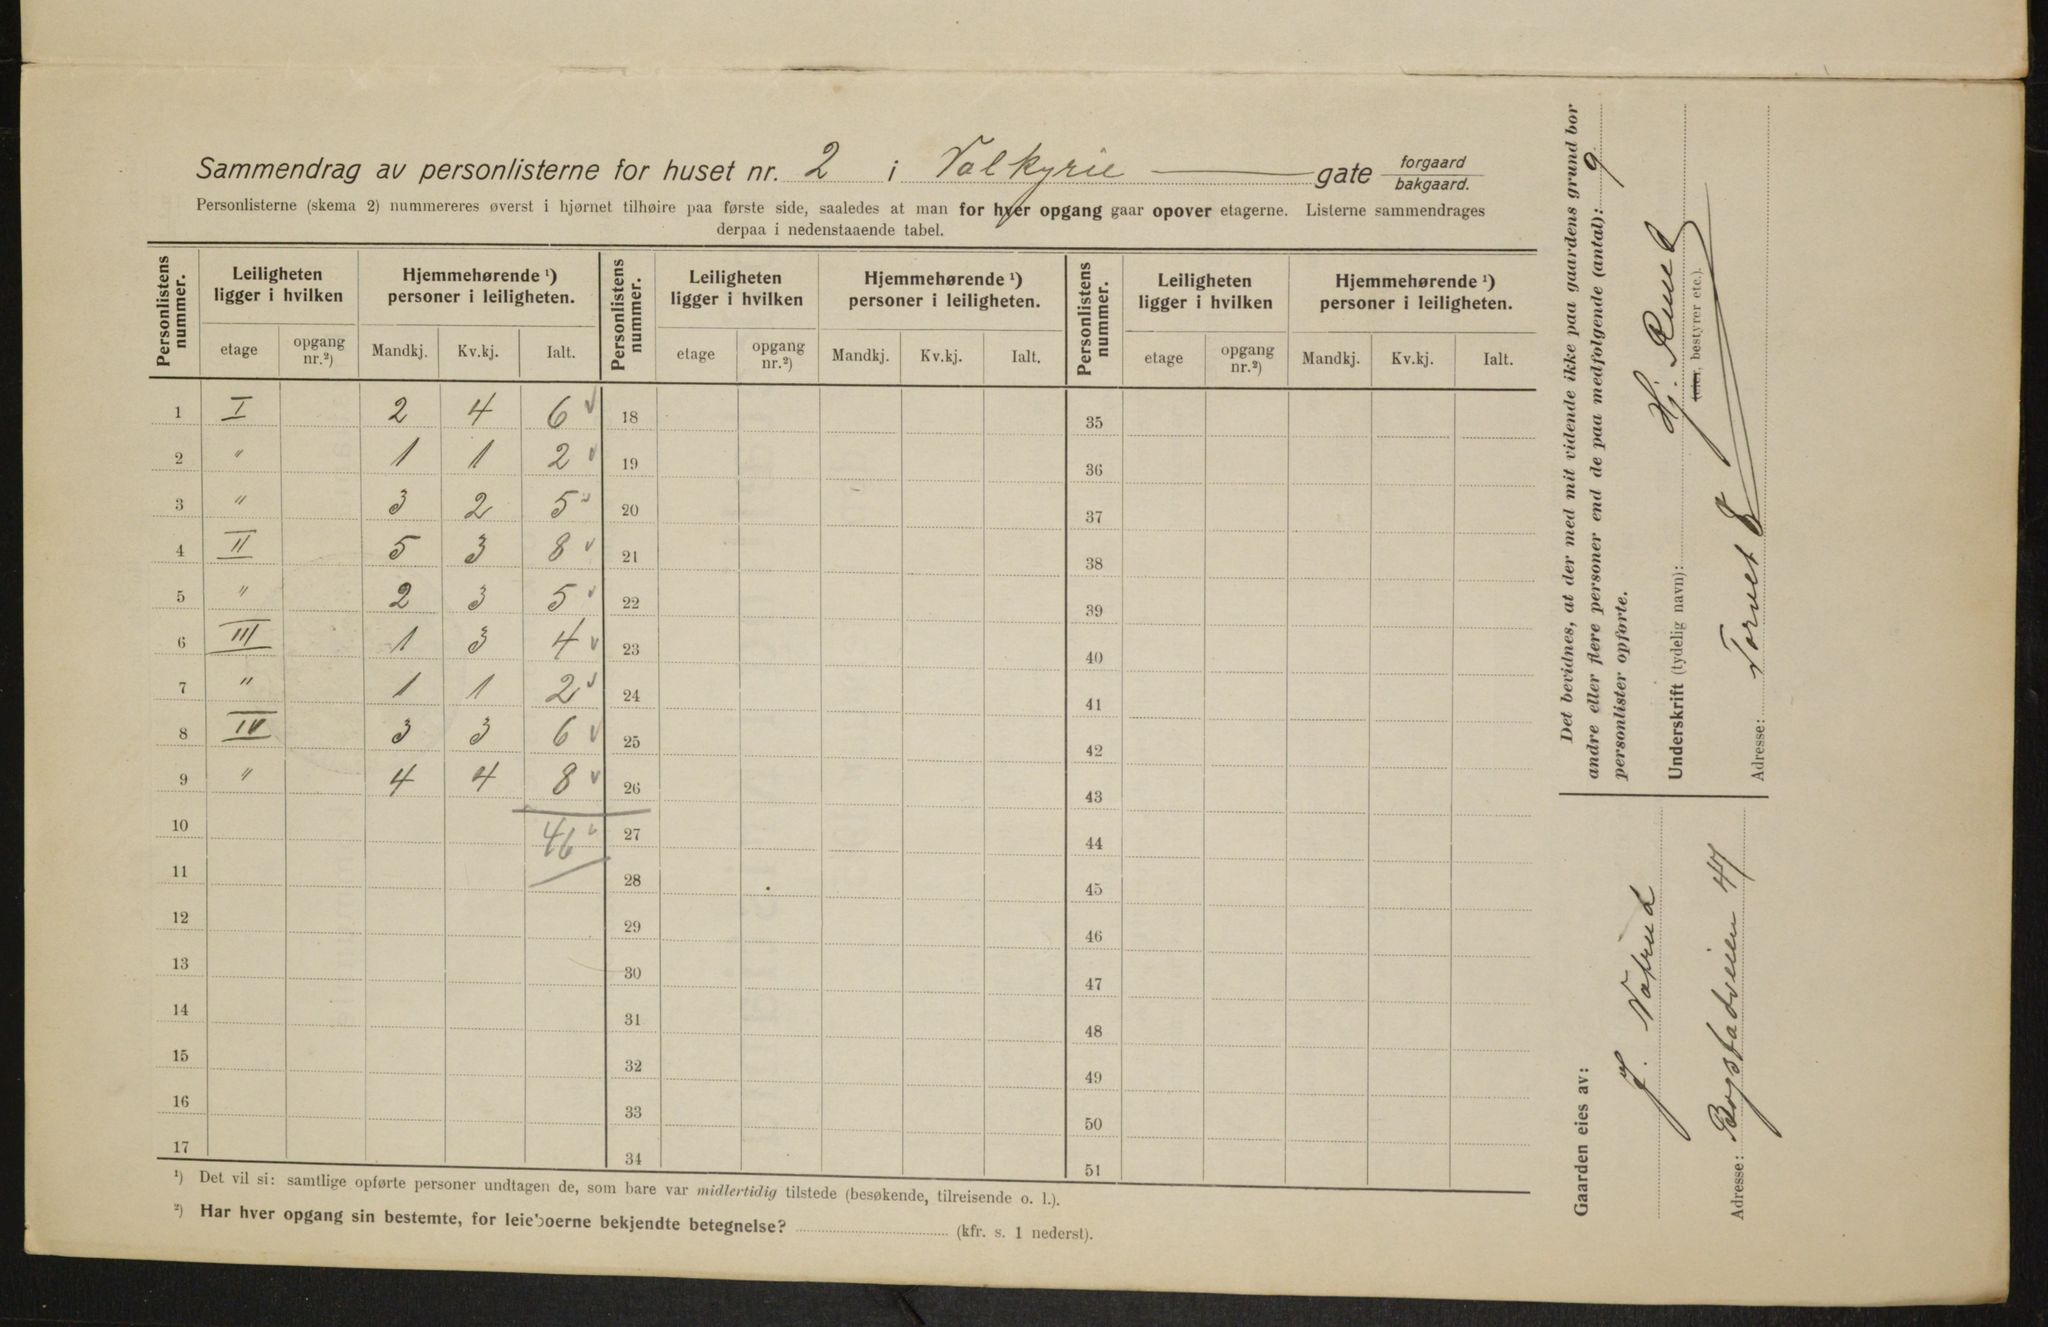 Sammendrag av personlisterne for huset nr. 2 i Valkyrie gate forgaard bakgaard.
Personlisterne (skema 2) nummereres øverst i hjørnet tilhøire paa første side, saaledes at man for hver opgang gaar opover etagerne. Listerne sammendrages
derpaa i nedenstaaende tabel.
Personlistens nummer. Leiligheten ligger i hvilken Hjemmehørende ¹) personer i leiligheten. Personlistens nummer. Leiligheten ligger i hvilken Hjemmehørende ¹) personer i leiligheten. Personlistens nummer. Leiligheten ligger i hvilken Hjemmehørende ¹) personer i leiligheten.
etage opgang nr.²) Mandkj. Kv.kj. Ialt. etage opgang nr.²) Mandkj. Kv.kj. Ialt. etage opgang nr.²) Mandkj. Kv.kj. Ialt.
1 I 2 4 6 18 35
2 " 1 1 2 19 36
3 " 3 2 5 20 37
4 II 5 3 8 21 38
5 " 2 3 5 22 39
6 III 1 3 4 23 40
7 " 1 1 2 24 41
8 IV 3 3 6 25 42
9 " 4 4 8 26 43
10 46 27 44
11 28 45
12 29 46
13 30 47
14 31 48
15 32 49
16 33 50
17 34 51
¹) Det vil si: samtlige opførte personer undtagen de, som bare var midlertidig tilstede (besøkende, tilreisende o. l.).
²) Har hver opgang sin bestemte, for leieboerne bekjendte betegnelse? (kfr. s. 1 nederst).
Det bevidnes, at der med mit vidende ikke paa gaardens grund bor
andre eller flere personer end de paa medfølgende (antal): 9
personlister opførte.
Underskrift (tydelig navn): Hj.
(eier, bestyrer etc.).
Adresse: Torvet
Gaarden eies av:
J.
Adresse: Bogstadveien 47